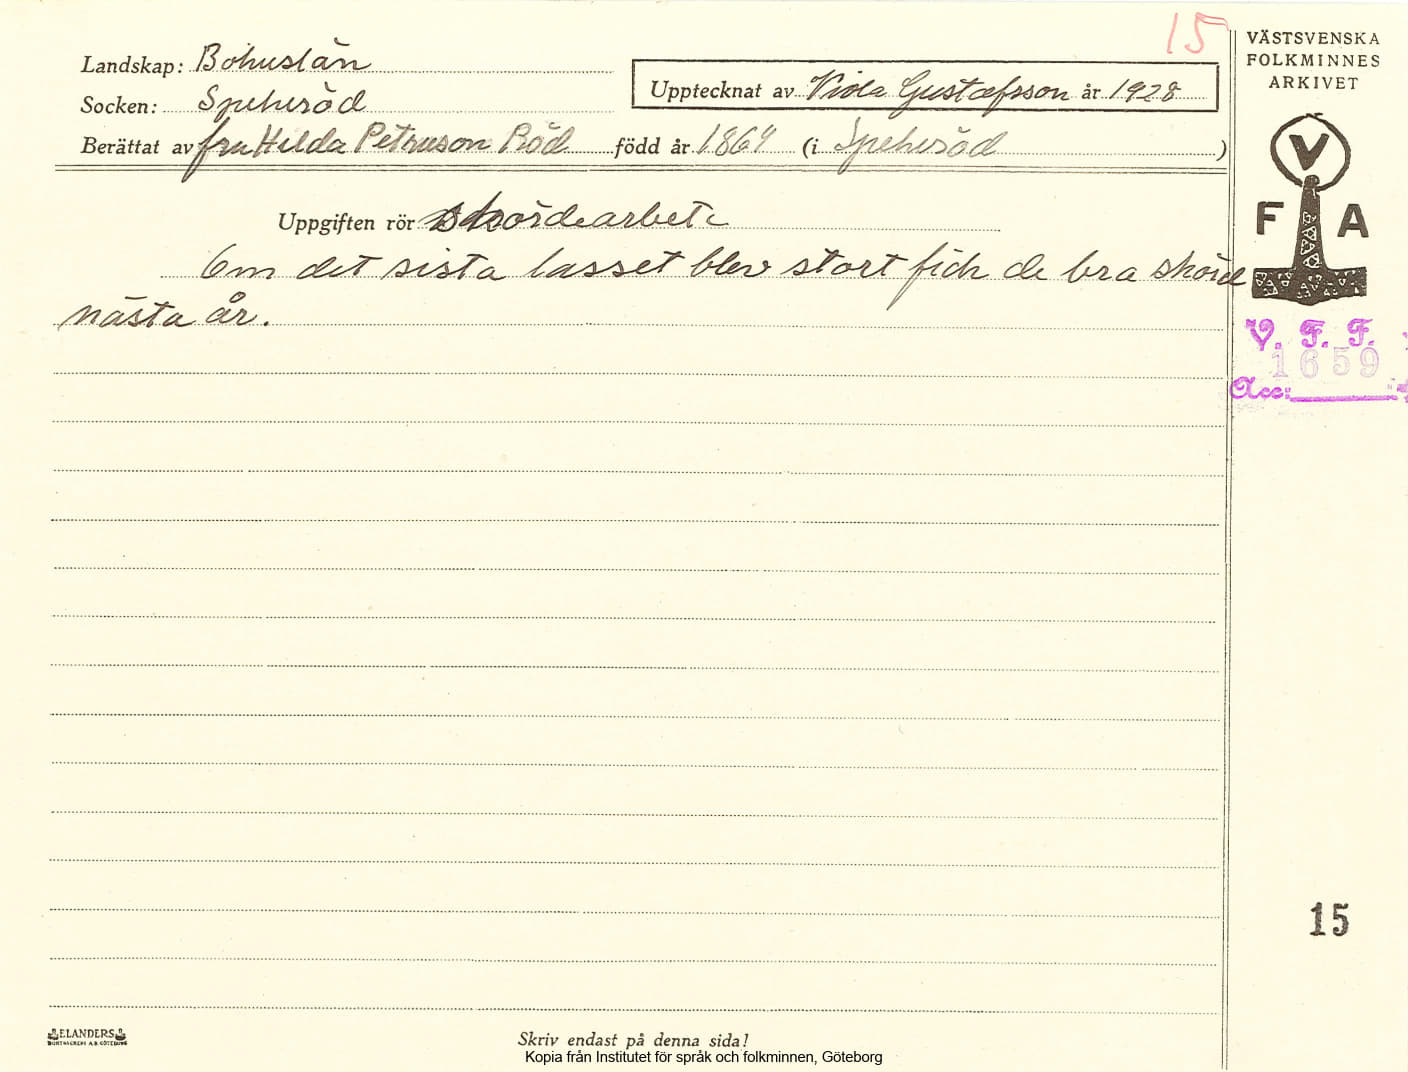 15
VÄSTSVENSKA
FOLKMINNES
ARKIVET
Landskap: Bohuslän
Upptecknat av Viola Gustafsson år 1928
Socken: Spekeröd
Berättat av fru Hilda Petruson Röd född år 1864 (i Spekeröd)
V
F A
Uppgiften rör skördearbete
Om det sista lasset blev stort fick de bra skörd
nästa år.
V. F. F.
1659
Acc:
15
ELANDERS
BOKTRYCKERI A.B. GÖTEBORG
Skriv endast på denna sida!
Kopia från Institutet för språk och folkminnen, Göteborg